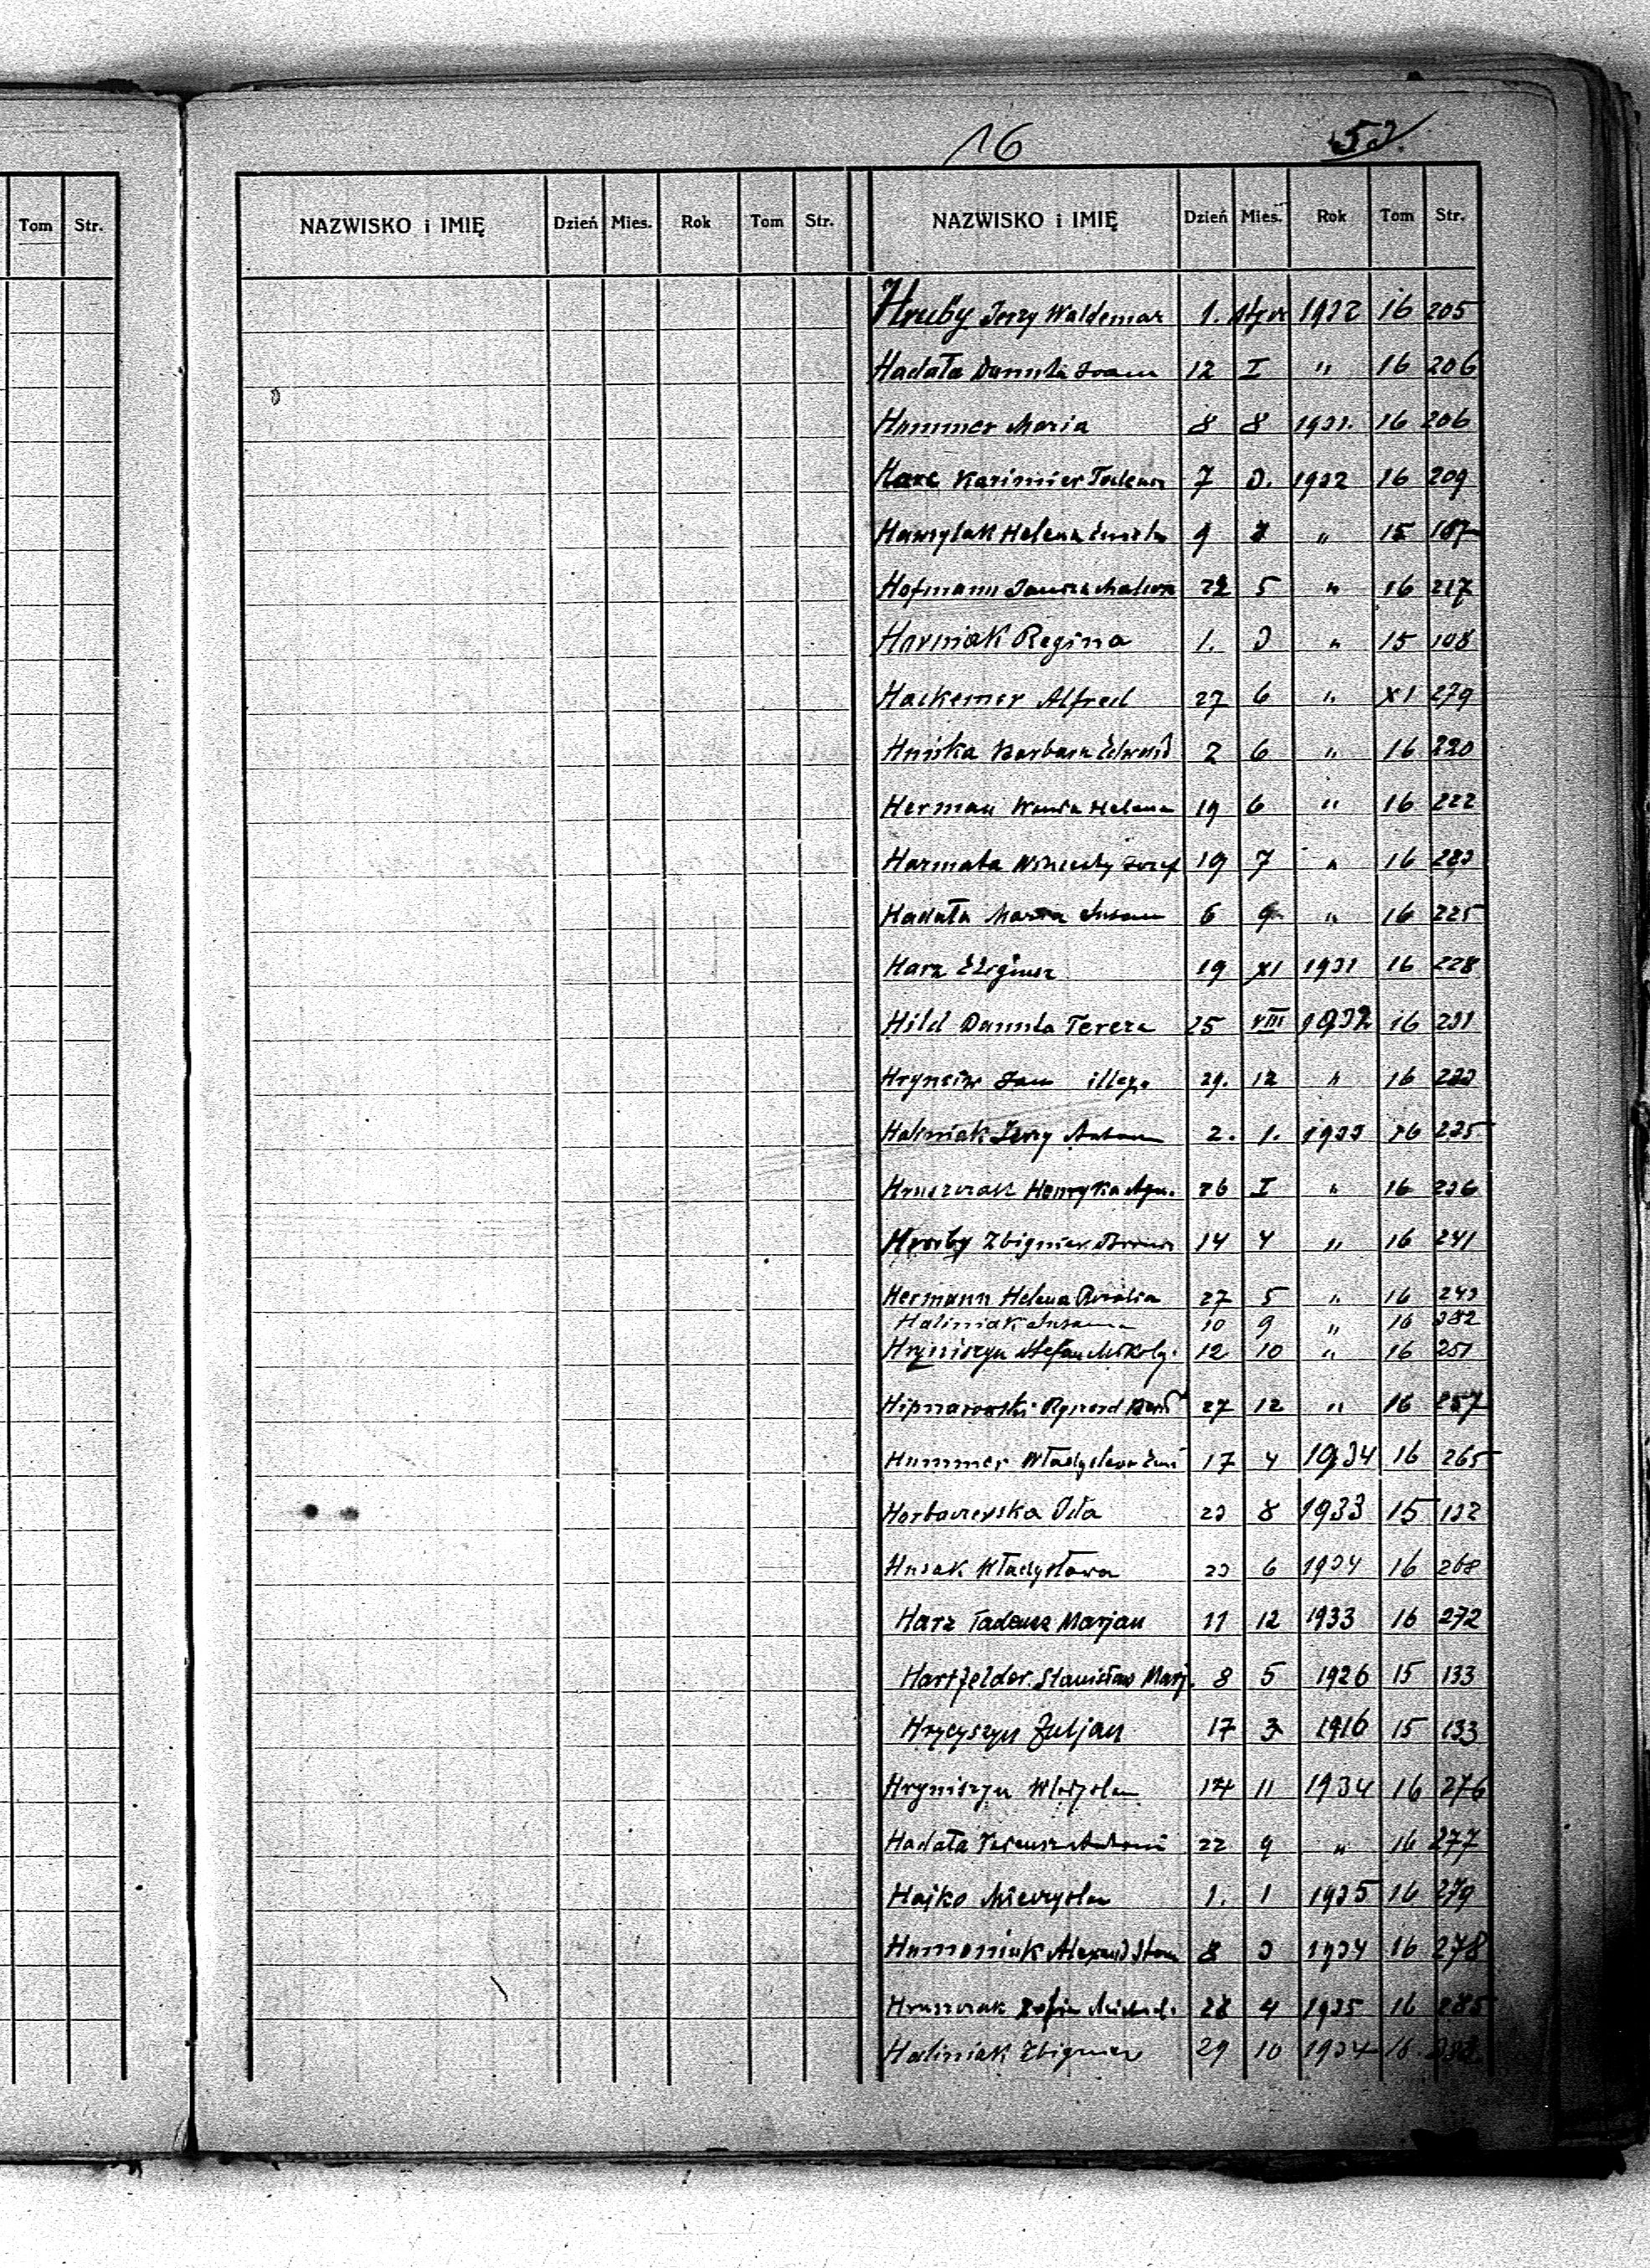 16 52.
Tom Str.
NAZWISKO i IMIĘ Dzień Mies. Rok Tom Str. NAZWISKO i IMIĘ Dzień Mies. Rok Tom Str.
Hruby Jerzy Waldemar 1. 1932 16 205
Hadała Danuta Joan 12 I " 16 206
Hummer Maria 8 8 1931. 16 206
Harc Kazimierz Tadeusz 7 3. 1932 16 209
Hawrylak Helena 9 " 15 107
Hofmann 22 5 " 16 217
Harniak Regina 1. 3 " 15 108
Hackemer Alfred 27 6 " XI 279
Huńka Barbara 2 6 " 16 220
Herman Wanda Helena 19 6 " 16 222
Harmata Józef 19 7 " 16 223
Hadała 6 9 " 16 225
Harz 19 XI 1931 16 228
Hild Danuta Tereza 25 VIII 1932 16 231
Hrynciw Jan illeg. 29. 12 " 16 233
Haliniak Jerzy 2. 1. 1933 16 235
Hruszczak Henryka 26 I " 16 236
Hruby Zbigniew 14 4 " 16 241
Hermann Helena Rozalia 27 5 " 16 243
Haliniak Zuzanna 10 9 " 16 382
Hryniszyn Stefan Mikołaj. 12 10 " 16 251
27 12 " 16 257
Hummer Władysław 17 4 1934 16 265
Horbaczewska 23 8 1933 15 132
Husak Władysława 23 6 1934 16 268
Harz Tadeusz Marjan 11 12 1933 16 272
Hartfelder Stanisław Marj. 8 5 1926 15 133
Hrycyszyn Juljan 17 3 1916 15 133
Hryniszyn 14 11 1934 16 276
Hadała Tadeusz Antoni 22 9 " 16 277
Hajko Mieczysław 1. 1 1935 16 279
8 3 1934 16 278
Hruszczak Zofia 28 4 1935 16 285
Haliniak Zbigniew 29 10 1934 16